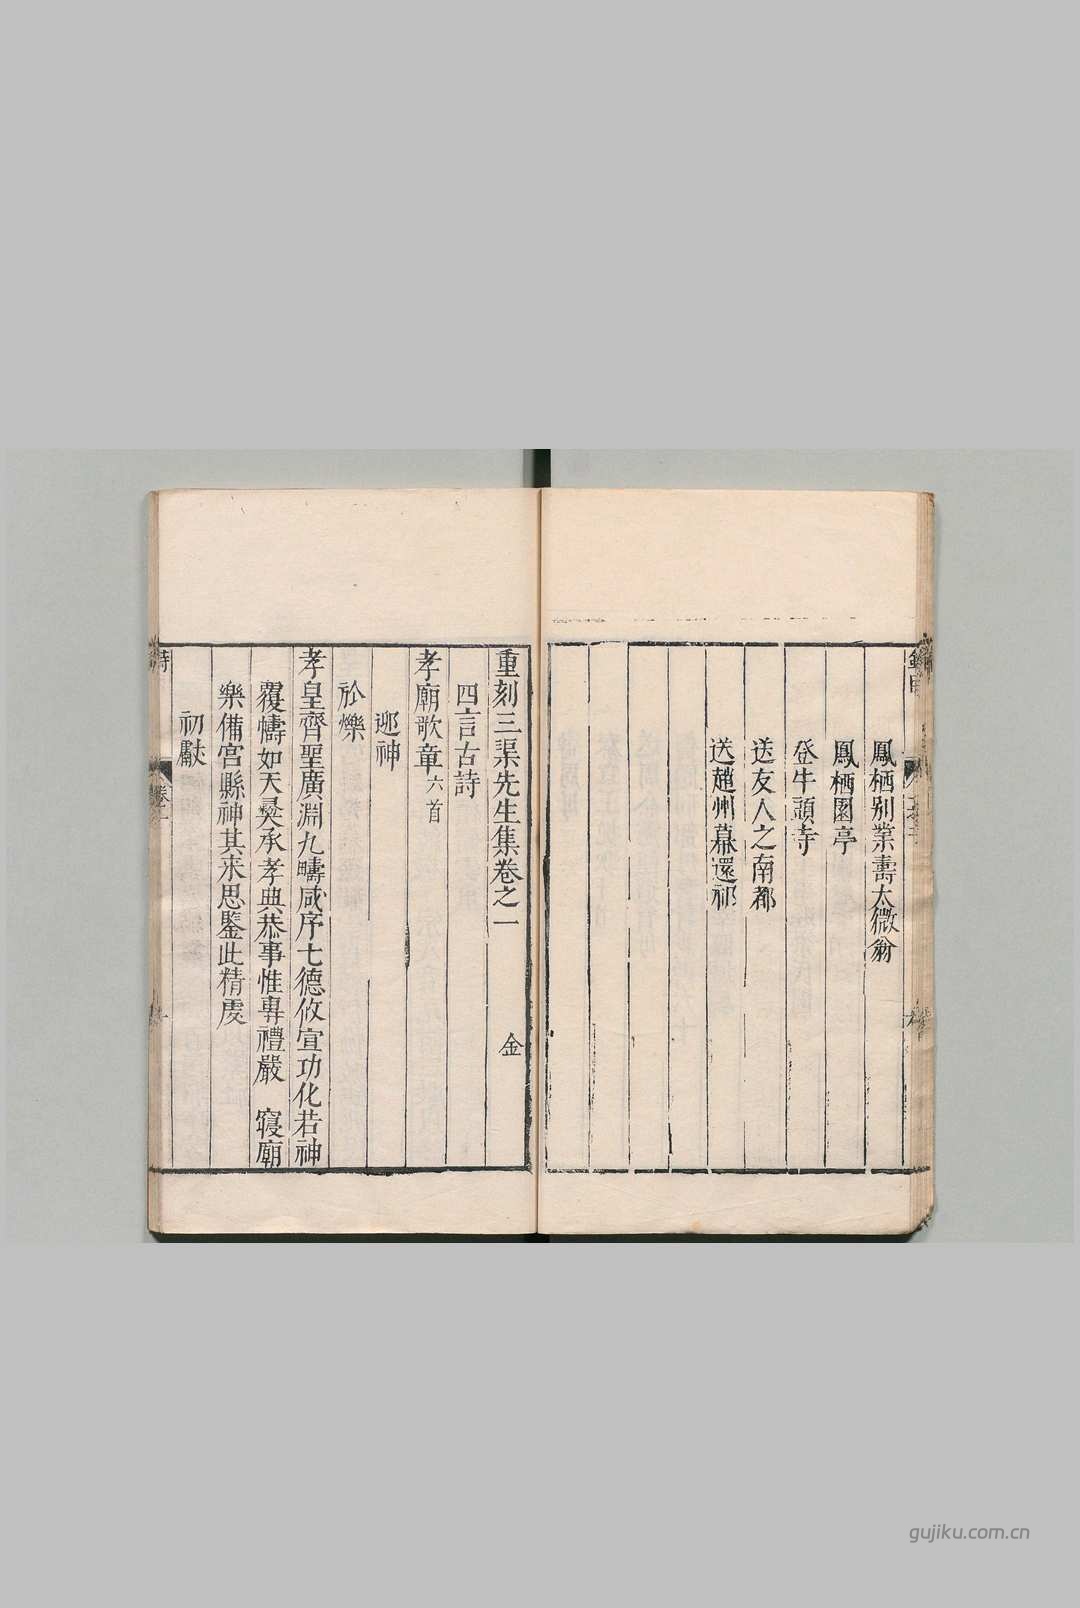 鳳栖别業壽太微翁
鳳栖園亭
登牛頭寺
送友人之南都
送趙州幕還祁
重刻三渠先生集卷之一
金
四言古詩
孝廟歌章六首
迎神
於爍
孝皇齊聖廣淵九疇咸序七德攸宣功化若神
覆幬如天爰承孝典恭事惟專禮嚴 寢廟
樂備宮縣神其来思鑒此精虔
初獻
詩
卷一
一
gujiku.com.cn